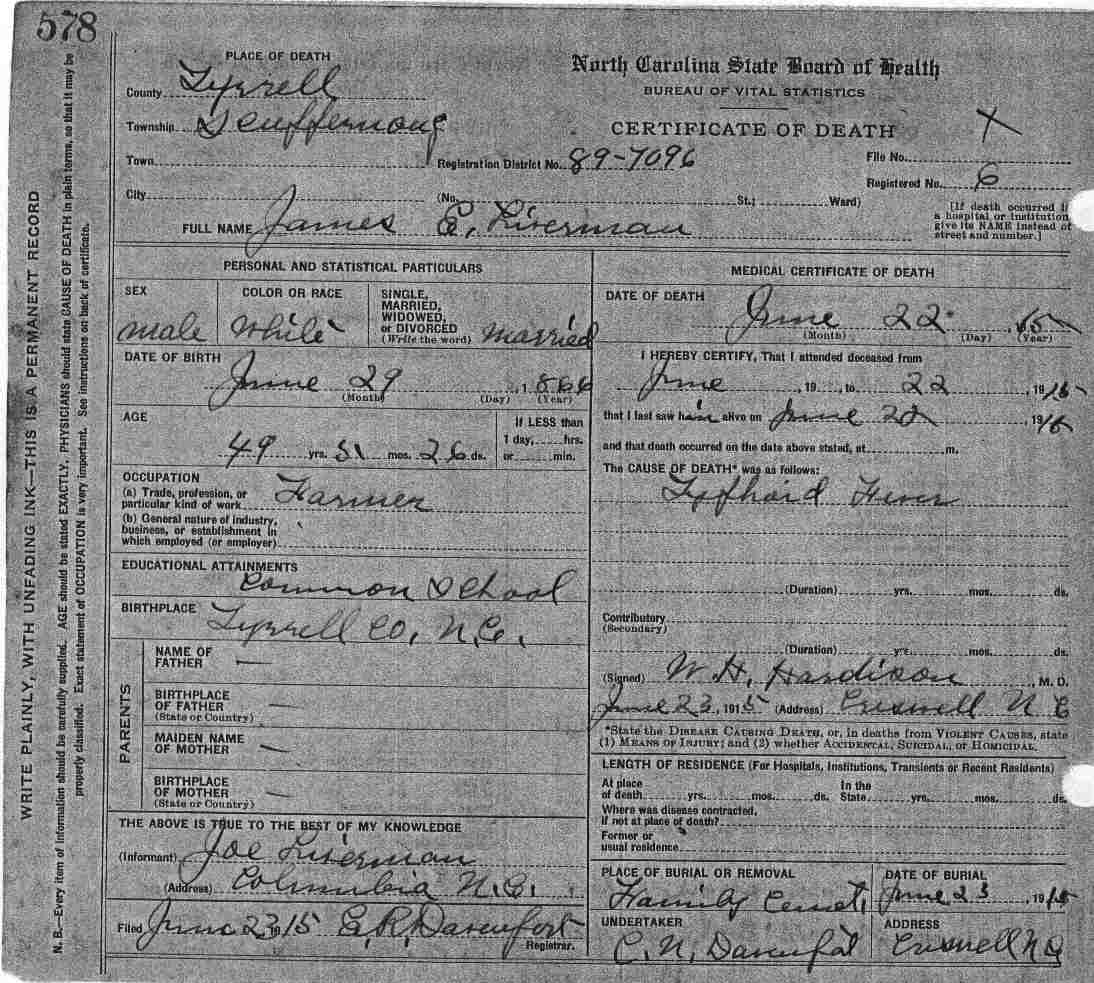 578
WRITE PLAINLY, WITH UNFADING INK—THIS IS A PERMANENT RECORD
N. B.—Every item of information should be carefully supplied. AGE should be stated EXACTLY. PHYSICIANS should state CAUSE OF DEATH in plain terms, so that it may be
properly classified. Exact statement of OCCUPATION is very important. See instructions on back of certificate.
PLACE OF DEATH
County Tyrrell
Township Scuffernong
Town
City
North Carolina State Board of Health
BUREAU OF VITAL STATISTICS
CERTIFICATE OF DEATH
X
Registration District No. 89-7096
File No.
Registered No. 6
(No. St.; Ward)
[If death occurred in
a hospital or institution
give its NAME instead of
street and number.]
FULL NAME James E. Liverman
PERSONAL AND STATISTICAL PARTICULARS
SEX
male
COLOR OR RACE
White
SINGLE,
MARRIED,
WIDOWED,
or DIVORCED
(Write the word) married
DATE OF BIRTH
June 29, 1866
(Month) (Day) (Year)
AGE
49 yrs. mos. 26 ds.
If LESS than
1 day, hrs.
or min.
OCCUPATION
(a) Trade, profession, or
particular kind of work Farmer
(b) General nature of industry,
business, or establishment in
which employed (or employer)
EDUCATIONAL ATTAINMENTS
Common School
BIRTHPLACE
Tyrrell Co. N.C.
PARENTS
NAME OF
FATHER —
BIRTHPLACE
OF FATHER —
(State or Country)
MAIDEN NAME
OF MOTHER —
BIRTHPLACE
OF MOTHER —
(State or Country)
THE ABOVE IS TRUE TO THE BEST OF MY KNOWLEDGE
(Informant) Joe Liverman
(Address) Columbia N.C.
Filed June 23 1915 C.R. Davenport
Registrar.
MEDICAL CERTIFICATE OF DEATH
DATE OF DEATH
June 22, 15
(Month) (Day) (Year)
I HEREBY CERTIFY, That I attended deceased from
June, 19, to 22 1915
that I last saw him alive on June 22 1915
and that death occurred on the date above stated, at m.
The CAUSE OF DEATH* was as follows:
Typhoid Fever
(Duration) yrs. mos. ds.
Contributory
(Secondary)
(Duration) yrs. mos. ds.
(Signed) W. H. Hardison, M. D.
June 23, 1915 (Address) Creswell N C
*State the DISEASE CAUSING DEATH, or, in deaths from VIOLENT CAUSES, state
(1) MEANS OF INJURY; and (2) whether ACCIDENTAL, SUICIDAL, or HOMICIDAL.
LENGTH OF RESIDENCE (For Hospitals, Institutions, Transients or Recent Residents)
At place
of death yrs. mos. ds.
In the
State yrs. mos. ds.
Where was disease contracted,
if not at place of death?
Former or
usual residence
PLACE OF BURIAL OR REMOVAL
Family Cemet.
DATE OF BURIAL
June 23 1915
UNDERTAKER
C. N. Davenport
ADDRESS
Creswell N C